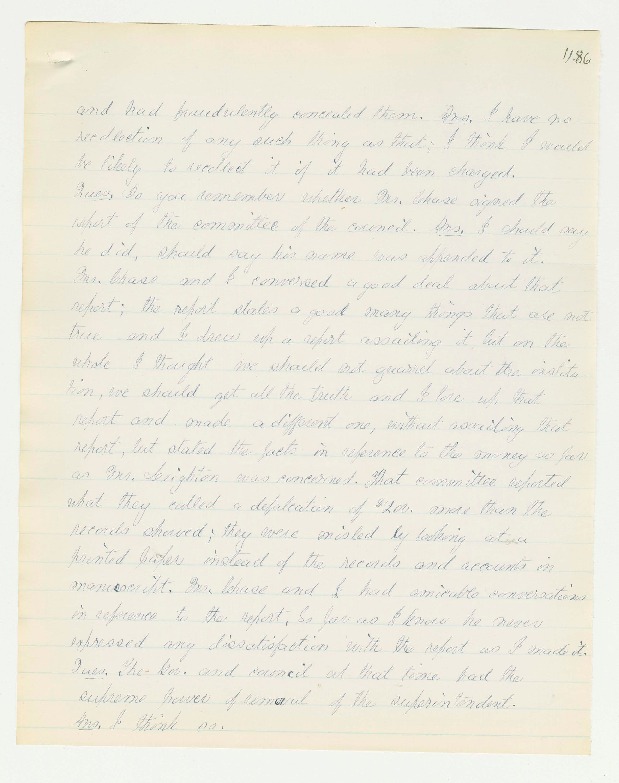 1186
and had fraudulently concealed them. Ans. I have no
recollection of any such thing as that; I think I would
be likely to recollect it if it had been charged.
Ques. Do you remember whether Mr. Chase signed the
report of the committee of the council. Ans. I should say
he did, should say his name was appended to it.
Mr. Chase and I conversed a good deal about that
report; the report states a good many things that are not
true and I drew up a report assailing it, but on the
whole I thought we should not quarrel about the institu
tion, we should get all the truth and I tore up that
report and made a different one, without assailing that
report, but stated the facts in reference to the money as far
as Mr. Leighton was concerned. That committee reported
what they called a defalcation of $200. more than the
records showed; they were misled by looking at a
printed paper instead of the records and accounts in
manuscript. Mr. Chase and I had amicable conversations
in reference to the report, So far as I know he never
expressed any dissatisfaction with the report as I made it.
Ques. The Gov. and council at that time had the
supreme power of removal of the superintendent.
Ans. I think so.